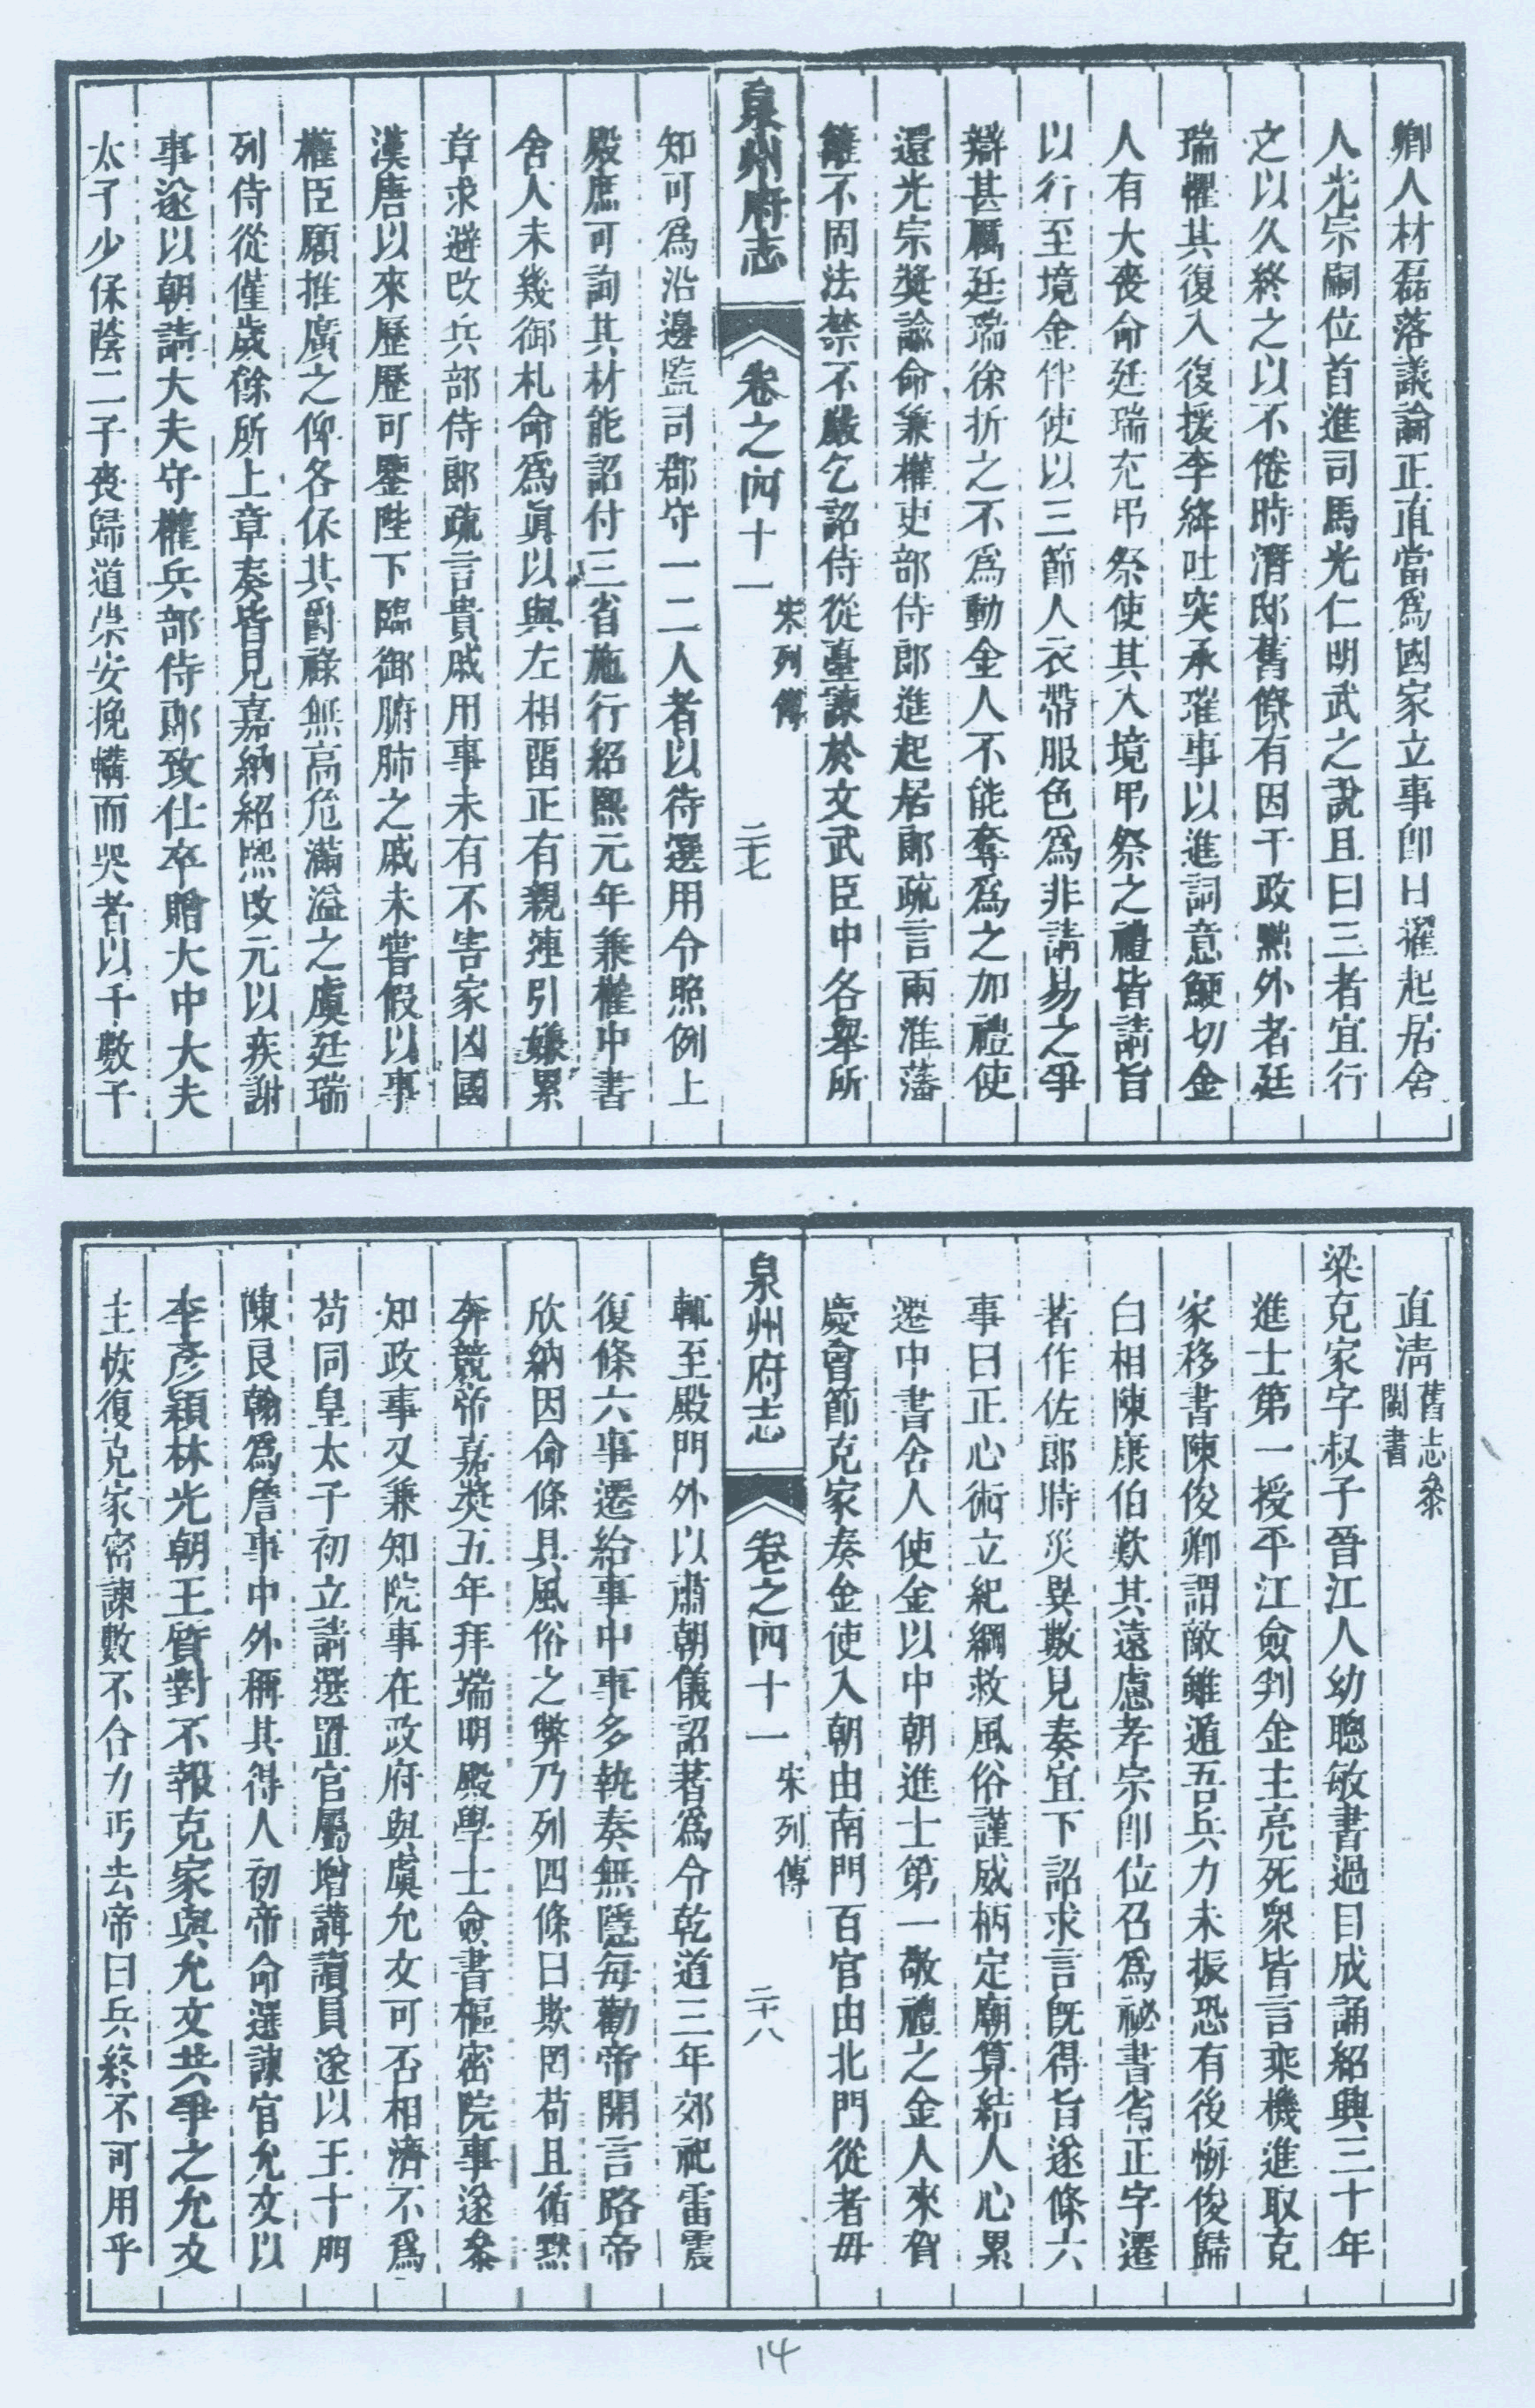 卿人材磊落議論正直當爲國家立事卽日擢起居舍
人光宗嗣位首進司馬光仁明武之說且曰三者宜行
之以久終之以不倦時潛邸舊僚有因干政黜外者廷
瑞懼其復入復援李絳吐突承璀事以進詞意鯁切金
人有大喪命廷瑞充弔祭使其入境弔祭之禮皆請旨
以行至境金伴使以三節人衣帶服色爲非請易之爭
辯甚厲廷瑞徐折之不爲動金人不能奪爲之加禮使
還光宗獎諭命兼權吏部侍郎進起居郎疏言兩淮藩
籬不固法禁不嚴乞詔侍從臺諫於文武臣中各舉所
泉州府志
卷之四十一
宋列傳
二十七
知可爲沿邊監司郡守一二人者以待選用令照例上
殿庶可詢其材能詔付三省施行紹熙元年兼權中書
舍人未幾御札命爲眞以與左相畱正有親連引嫌累
章求避改兵部侍郎疏言貴戚用事未有不害家凶國
漢唐以來歷歷可鑒陛下臨御腑肺之戚未嘗假以事
權臣願推廣之俾各保其爵祿無高危滿溢之虞廷瑞
列侍從僅歲餘所上章奏皆見嘉納紹熙改元以疾謝
事遂以朝請大夫守權兵部侍郎致仕卒贈大中大夫
太子少保蔭二子喪歸道崇安挽幬而哭者以千數子
直淸
舊志參
閩書
梁克家字叔子晉江人幼聰敏書過目成誦紹興三十年
進士第一授平江僉判金主亮死眾皆言乘機進取克
家移書陳俊卿謂敵雖遁吾兵力未振恐有後悔俊歸
白相陳康伯歎其遠慮孝宗卽位召爲祕書省正字遷
著作佐郎時災異數見奏宜下詔求言旣得旨遂條六
事曰正心術立紀綱救風俗謹威柄定廟算結人心累
遷中書舍人使金以中朝進士第一敬禮之金人來賀
慶會節克家奏金使入朝由南門百官由北門從者毋
泉州府志
卷之四十一
宋列傳
二十八
輒至殿門外以肅朝儀詔著爲令乾道三年郊祀雷震
復條六事遷給事中事多執奏無隱每勸帝開言路帝
欣納因命條具風俗之弊乃列四條曰欺罔苟且循默
奔競帝嘉獎五年拜端明殿學士僉書樞密院事遂參
知政事又兼知院事在政府與虞允文可否相濟不爲
苟同皇太子初立請選置官屬增講讀員遂以王十朋
陳良翰爲詹事中外稱其得人初帝命選諫官允文以
李彥穎林光朝王質對不報克家與允文共爭之允文
主恢復克家密諫數不合力丐去帝曰兵終不可用乎
14